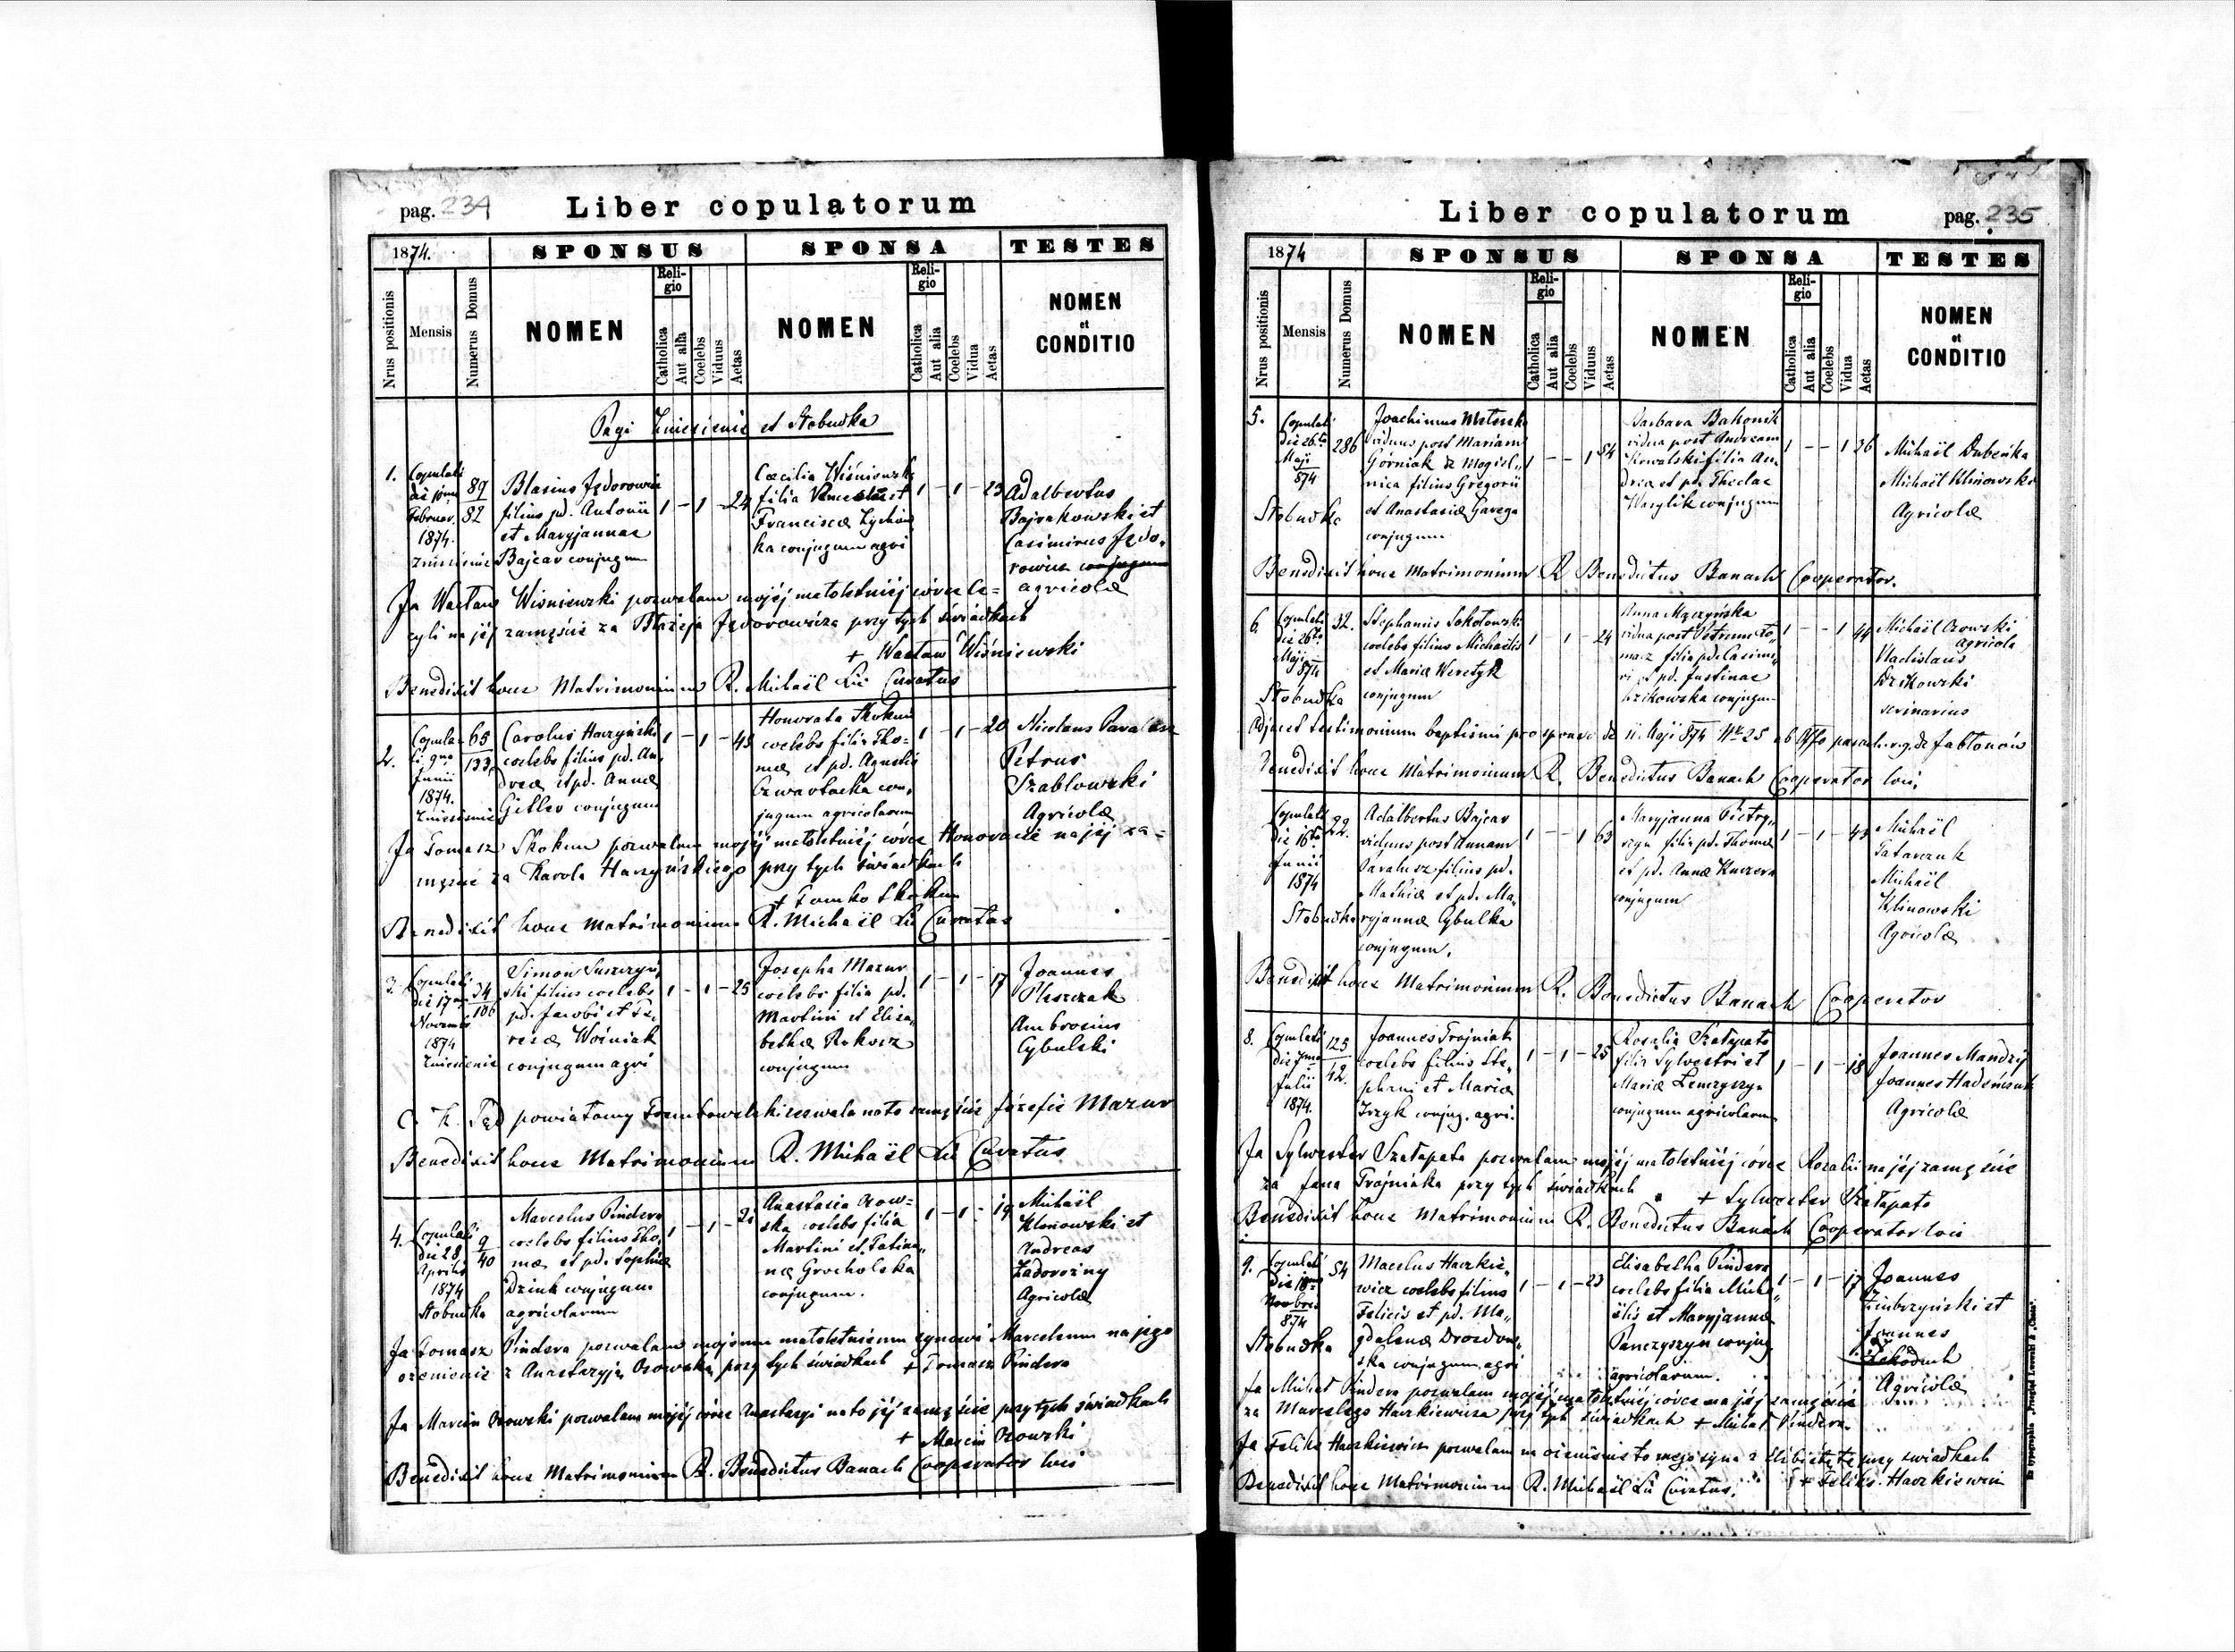 pag. 234
Liber copulatorum
1874.
SPONSUS
SPONSA
TESTES
Nrus positionis
Mensis
Numerus Domus
NOMEN
Religio
Catholica
Aut alia
Coelebs
Viduus
Aetas
NOMEN
Religio
Catholica
Aut alia
Coelebs
Vidua
Aetas
NOMEN
et
CONDITIO
Pagi Zniesienie et Stobudka
1.
Copulati
die
Februar.
1874.
Zniesienie
89
82
Blasius Jędorowicz
filius pd. Antonii
et Maryjannae
Bajcar conjugum
1 - 1 - 24
Cæcilia Wiśniowska
filia Venceslai et
Franciscæ
conjugum agri
1 - 1 - 23
Adalbertus
Bajrakowski et
Casimirus Jędo,
rowicz
agricolæ
Ja Wacław Wiśniewski pozwalam mojéj małoletniéj córce Ce=
cyli na jéj zamęście za Błażeja Jędorowicza przy tych świadkach
+ Wacław Wiśniewski
Benedixit hocce Matrimonium R. Michaël Lis Curatus
2.
Copula-
ti 9na
Junii
1874.
Zniesienie
65
133
Carolus Haczyński
coelebs filius pd. An,
dreæ et pd. Annæ
Gitler conjugum
1 - 1 - 45
Honorata Skokun
coelebs filia Tho=
mæ et pd. Agnetis
Czwartacka con,
jugum agricolarum
1 - 1 - 20
Nicolaus
Petrus
Szablowski
Agricolæ
Ja Tomasz Skokun pozwalam mojéj małoletniéj córce Honoracie na jéj za=
męście za Karola Haczyńskiego przy tych świadkach
+ Tomko Skokun
Benedixit hocce Matrimonium R. Michaël Lis Curatus
3.
Copulati
die 17a
Novembr.
1874
Zniesienie
34
106
Simon Suszczyń,
ski filius coelebs
pd. Jacobi et Te,
resæ Woźniak
conjugum agri
1 - 1 - 25
Josepha Mazur
coelebs filia pd.
Martini et Elisa,
bethæ Rokosz
conjugum
1 - 1 - 17
Joannes
Pleszczak
Ambrosius
Cybulski
C. K. Sąd powiatowy Trembowelski zezwala na to zamęście Józefie Mazur
Benedixit hocce Matrimonium R. Michaël Lis Curatus
4.
Copulati
die 28
Aprilis
1874
Stobudka
9
40
Marcelus Pindera
coelebs filius Tho,
mæ et pd. Sophiæ
Dziuk conjugum
agricolarum
1 - 1 -
Anastasia Ozow=
ska coelebs filia
Martini et Tatian,,
næ Grocholska
conjugum.
1 - 1 - 19
Michaël
Klinowski et
Andreas
Zadorożny
Agricolæ
Ja Tomasz Pindera pozwalam mojemu małoletniemu synowi Marcelemu na jego
ożenienie z Anastazyją Ozowską przy tych świadkach + Tomasz Pindera
Ja Marcin Ozowski pozwalam mojéj córce Anastazyi na to jéj zamęście przy tych świadkach
+ Marcin Ozowski
Benedixit hocce Matrimonium R. Benedictus Banach Cooperator loci
Liber copulatorum
pag. 235
1874
SPONSUS
SPONSA
TESTES
Nrus positionis
Mensis
Numerus Domus
NOMEN
Religio
Catholica
Aut alia
Coelebs
Viduus
Aetas
NOMEN
Religio
Catholica
Aut alia
Coelebs
Vidua
Aetas
NOMEN
et
CONDITIO
5.
Copulati
die 26ta
Maji
874
Stobudka
286
Joachimus
viduus post Mariam
Górniak de Mogiel,,
nica filius Gregorii
et Anastasiæ Gavega
conjugum
1 - - 1 54
Barbara
vidua post Andream
Kowalski filia An,
dreæ et pd. Theclae
Wasylik conjugum
1 - - 1 36
Michaël Dubeńka
Michaël Klinowski
Agricolæ
Benedixit hocce Matrimonium R Benedictus Banach Cooperator.
6.
Copulati
die 26ta
Maji
874
Stobudka
32.
Stephanus Sokołowski
coelebs filius Michaëlis
et Mariæ Weretyk
conjugum
1 - 1 - 24
Anna Męczyńska
vidua post Petrum To,,
macz filia pd. Casimi,
ri et pd. Justinae
Krzikowska conjugum
1 - - 1 44
Michaël Ozowski
agricola
Vladislaus
Krzikowski
scriniarius
Adjacet testimonium baptismi pro sponso de 11. Maji 874 Nr 25 ab Offo paroch. r. g. de Jabłonów
Benedixit hocce Matrimonium R. Benedictus Banach Cooperator loci.
Copulati
die 16ta
Junii
1874
Stobudka
22.
Adalbertus Bajcar
viduus post Annam
filius pd.
Mathiæ et pd. Ma,
ryjannæ Cybulka
conjugum.
1 - - 1 63
Maryjanna Pietry,,
filia pd. Thomæ
et pd. Annæ Kuczera
conjugum
1 - 1 - 43
Michaël
Tatarczuk
Michaël
Klinowski
Agricolæ
Benedixit hocce Matrimonium R. Benedictus Banach Cooperator
8.
Copulati
die 7ma
Julii
1874.
125
42.
Joannes Trojniak
coelebs filius Ste,
phani et Mariæ
Irzyk conjug. agri.
1 - 1 - 25
Rosalia Szałapata
filia Sylvestri et
Mariæ Lenczyszyn
conjugum agricolarum
1 - 1 - 18
Joannes Mandzij
Joannes
Agricolæ
Ja Sylwester Szałapata pozwalam mojéj małoletniéj córce Rozalii na jéj zamęście
za Jana Trójniaka przy tych świadkach + Sylwester Szałapata
Benedixit hocce Matrimonium R. Benedictus Banach Cooperator loci
9.
Copulati
Die 18
874
Stobudka
54
Marcelus Haczkie,,
wicz coelebs filius
Felicis et pd. Ma,,
gdalenæ Drozdow,
ska conjugum agri
1 - 1 - 23
Elisabetha Pindera
coelebs filia Micha,,
ëlis et Maryjannæ
Panczyszyn conjug
agricolarum.
1 - 1 - 17
Joannes
Zimbrzyński et
Joannes
Agricolæ
Ja Michał Pindera pozwalam mojéj małoletniéj córce na jéj zamęście
za Marcelego Haczkiewicza przy tych świadkach + Michał Pindera.
Ja Feliks Haczkiewicz pozwalam na ożenienie to mego syna z Elżbietą te przy świadkach
+ Feliks Haczkiewicz
Benedixit hocce Matrimonium R. Michaël Lis Curatus.